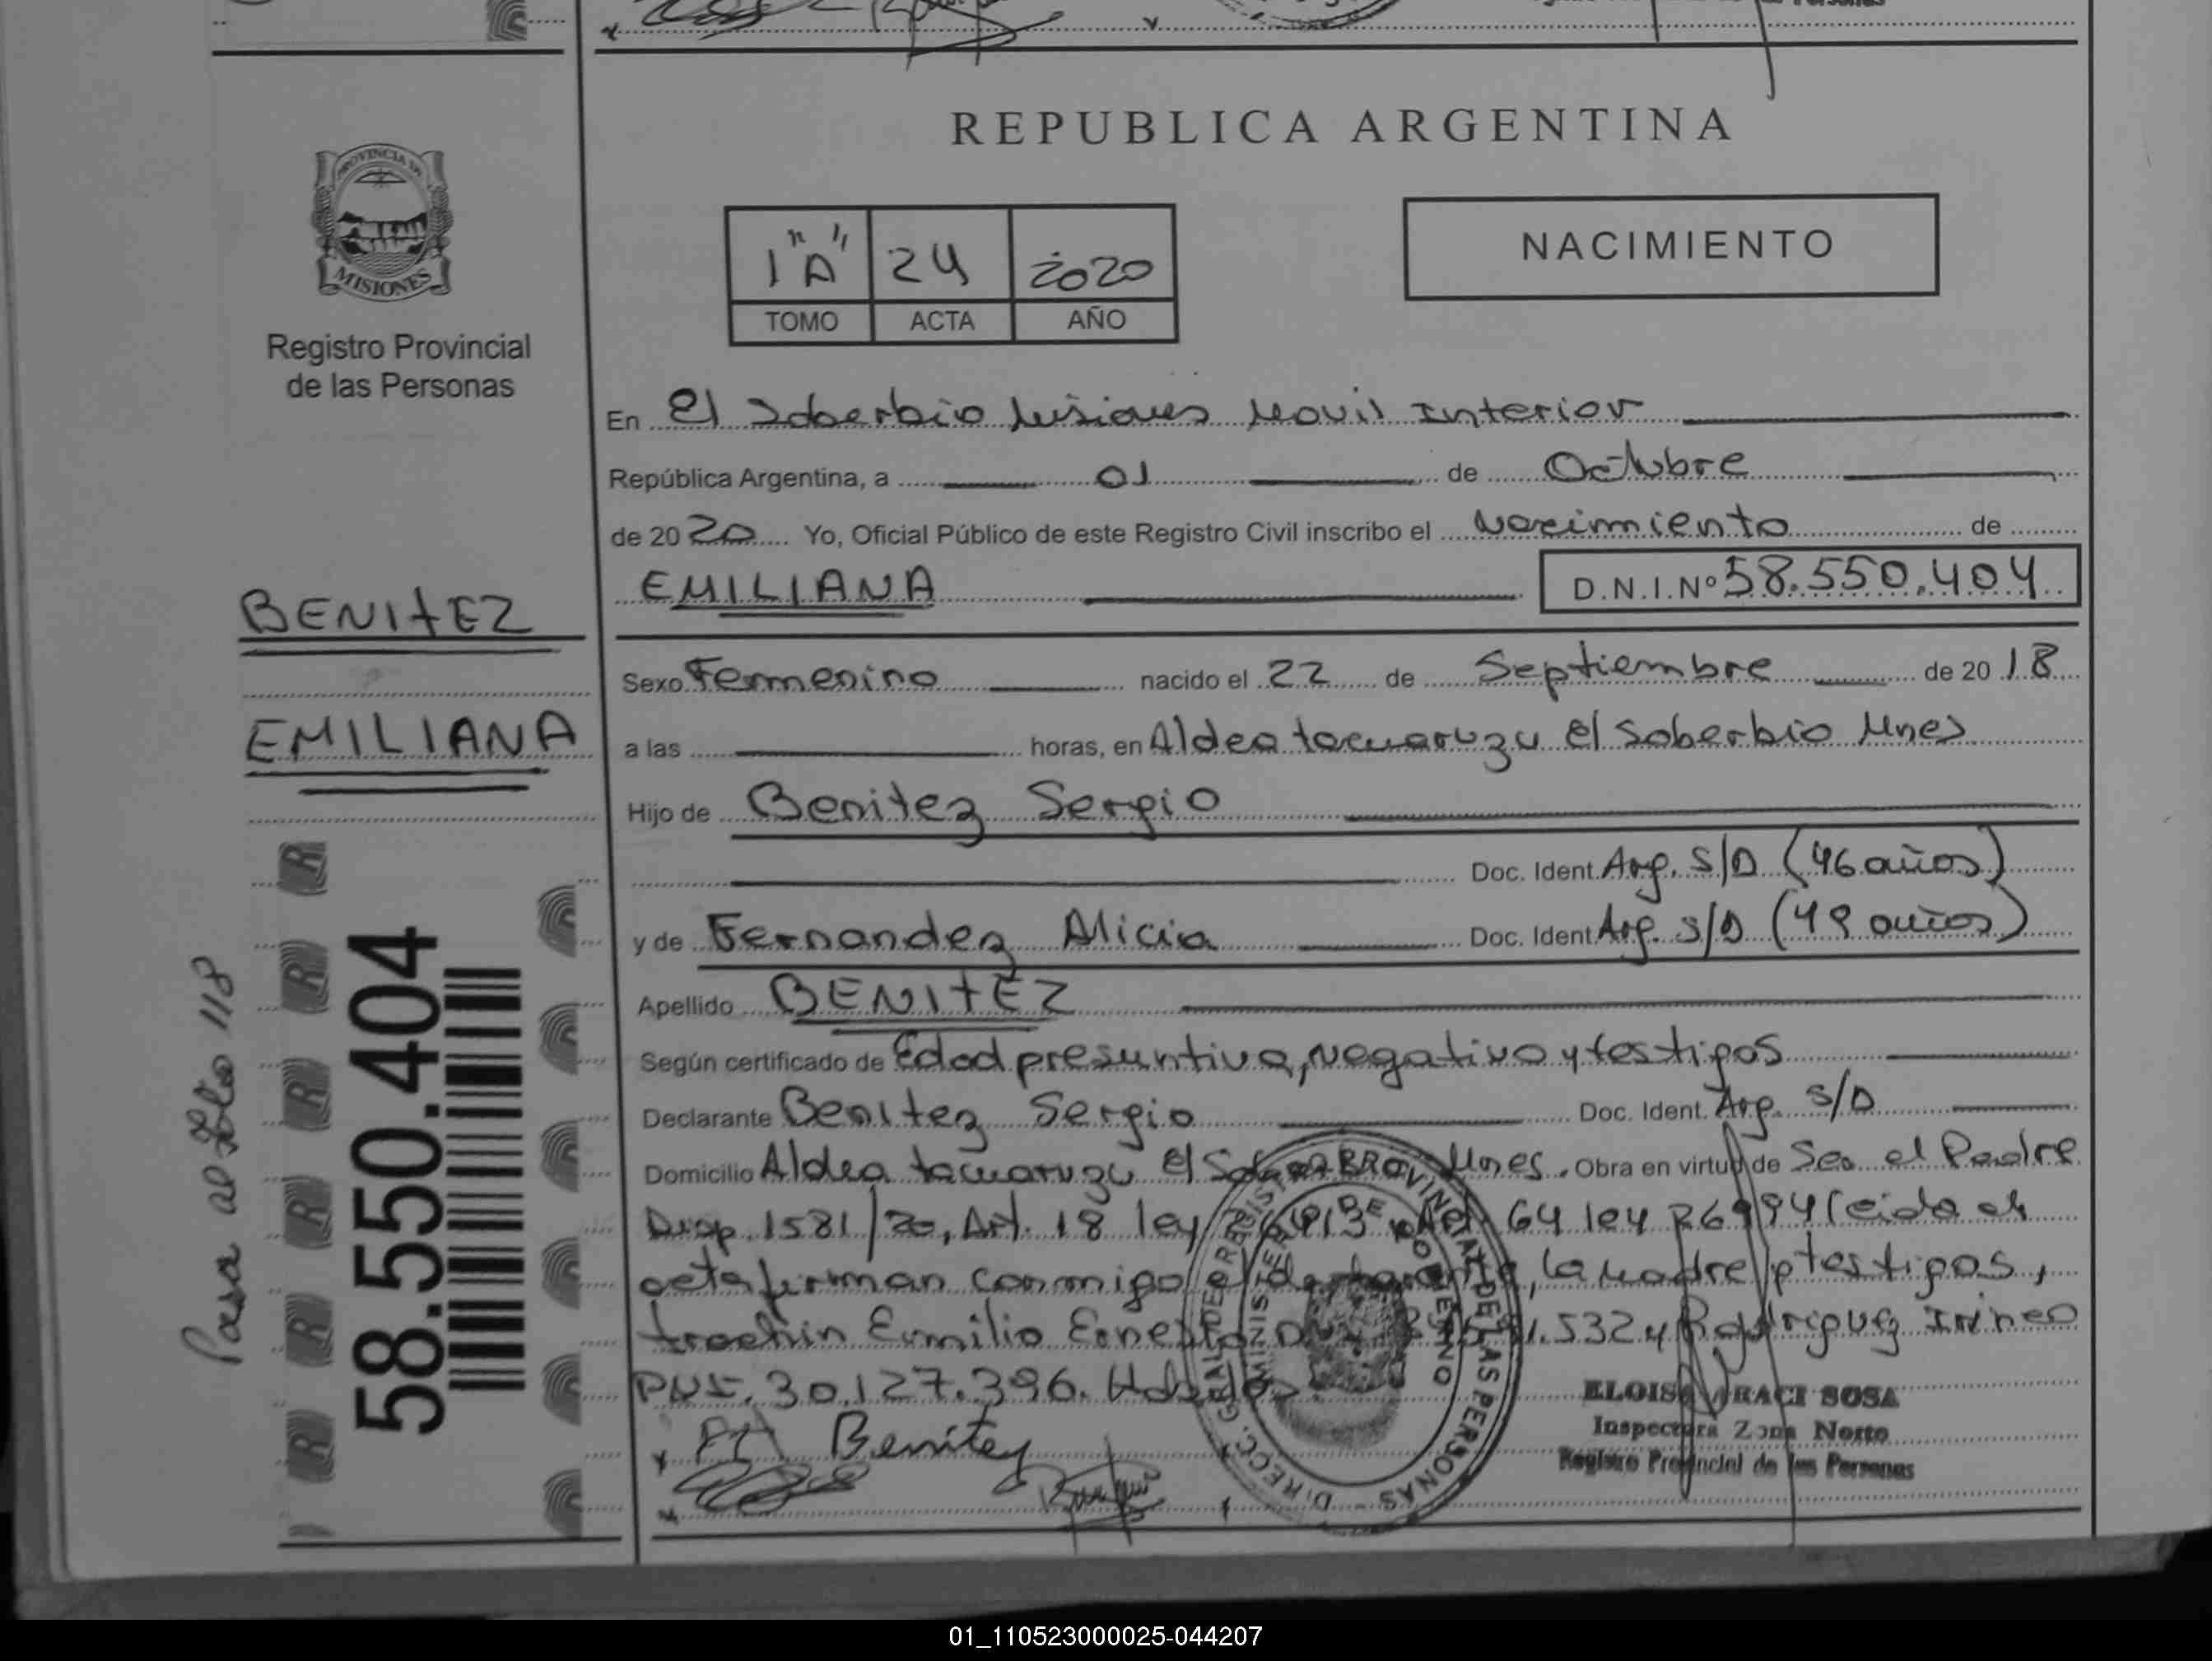 REPUBLICA ARGENTINA
PROVINCIA DE
MISIONES
Registro Provincial
de las Personas
1 "A" 24 2020
TOMO ACTA AÑO
NACIMIENTO
En El Soberbio Misiones Movil Interior
República Argentina, a 01 de Octubre
de 2020 Yo, Oficial Público de este Registro Civil inscribo el Nacimiento de
EMILIANA D.N.I.Nº 58.550.404
BENITEZ
EMILIANA
Sexo Femenino nacido el 22 de Septiembre de 2018
a las horas, en Aldea tacuaruzu El Soberbio Mnes
Hijo de Benitez Sergio
Doc. Ident. Arg. S/D (46 años)
y de Fernandez Alicia Doc. Ident. Arg. S/D (49 años)
Apellido BENITEZ
Según certificado de Edad presuntiva, negativo y testigos
Declarante Benitez Sergio Doc. Ident. Arg. S/D
Domicilio Aldea tacuaruzu El Mnes. Obra en virtud de Ser el Padre
Disp. 1581/20, Art. 18 ley 26413 Art. 64 ley 26994 leida el
acta firman conmigo el declarante, la madre y testigos,
Emilio Ernesto .532 y Rodriguez Irineo
DNI. 30.127.396.
Benitez
DIRECC. GRAL. DE REGISTRO PROVINCIAL DE LAS PERSONAS
MINISTERIO DE GOBIERNO
ELOISA ARACI SOSA
Inspectora Zona Norte
Registro Provincial de las Personas
58.550.404
Pasa al folio 118
01_110523000025-044207